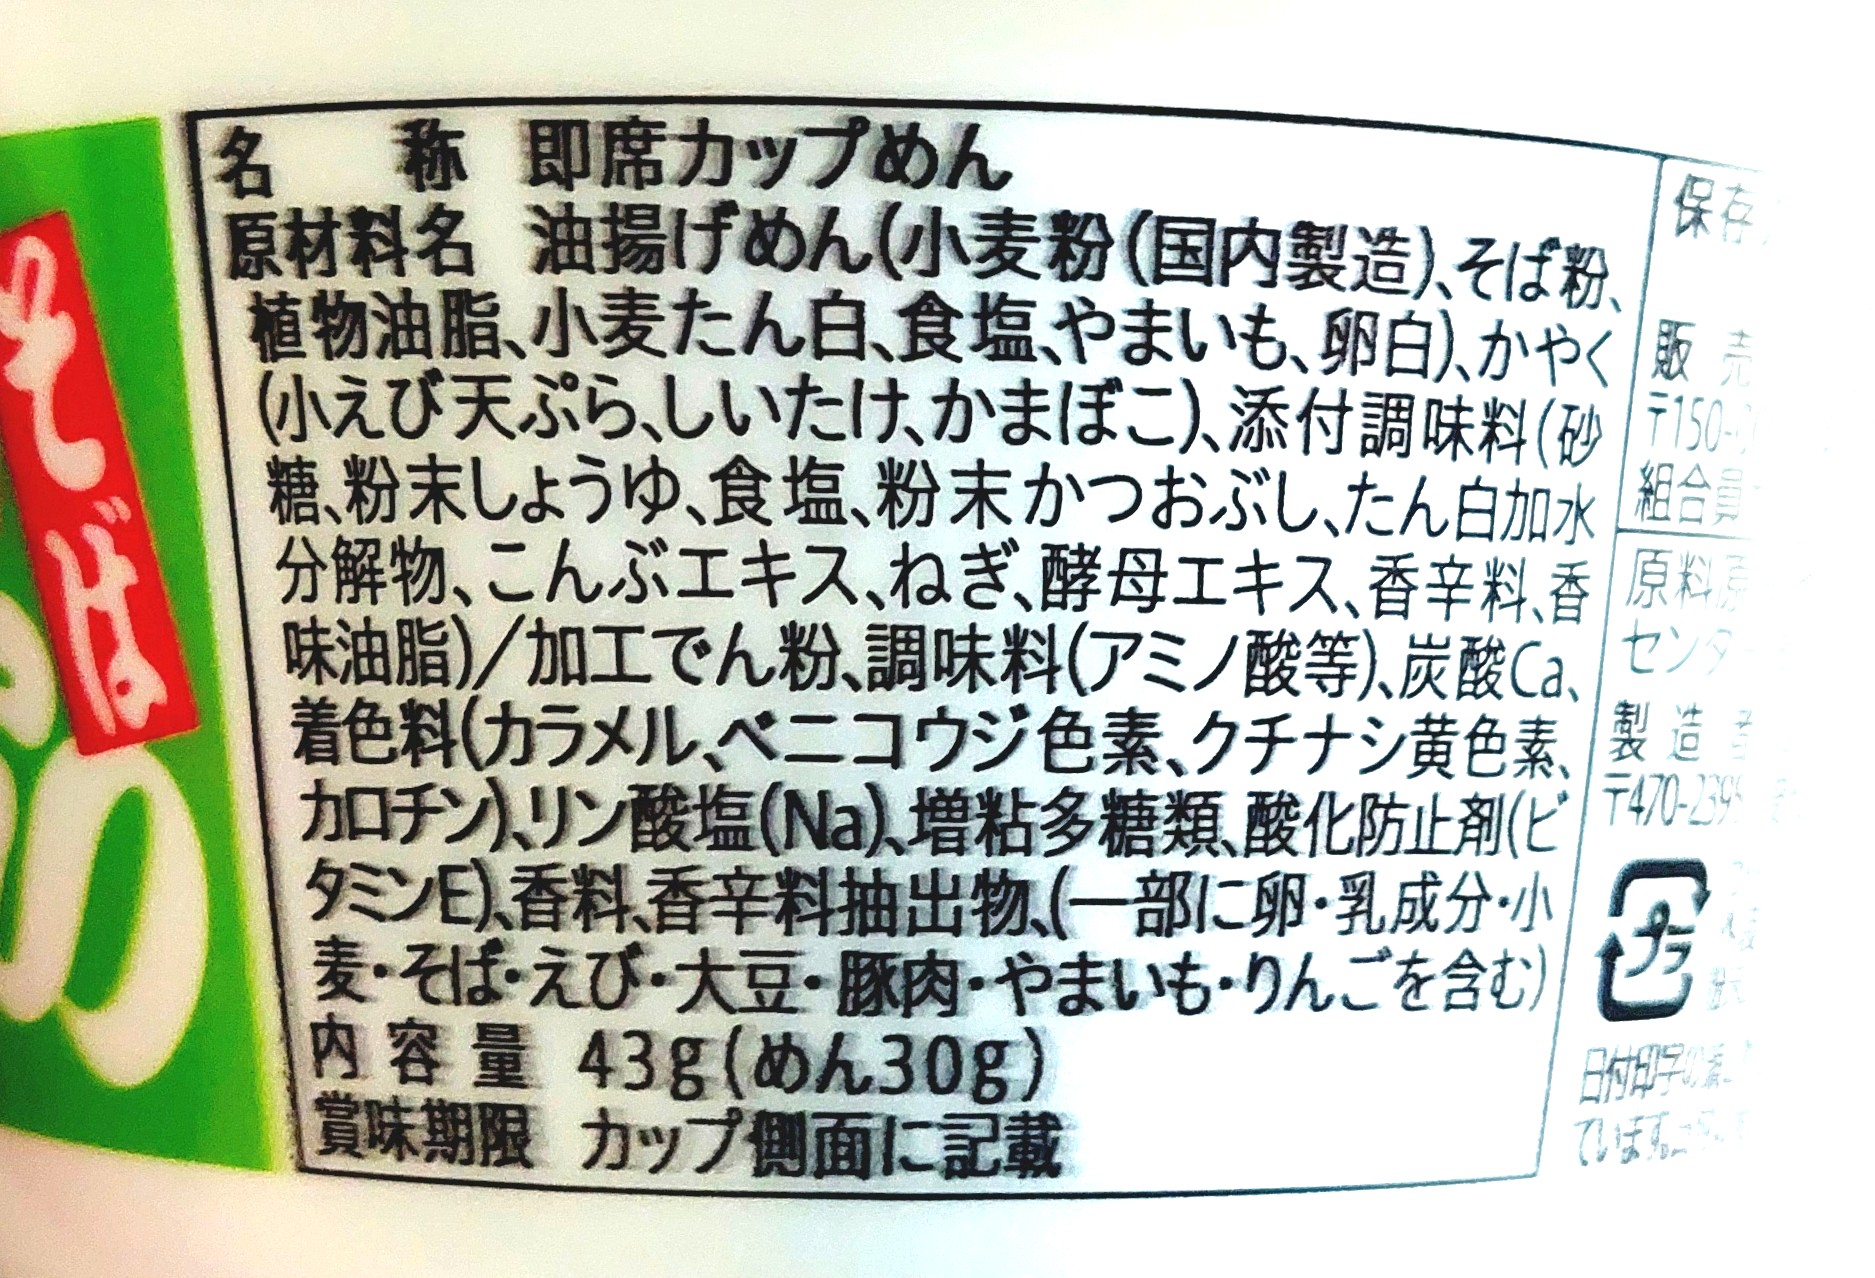 そば
名称 即席カップめん
原材料名 油揚げめん(小麦粉(国内製造)、そば粉、
植物油脂、小麦たん白、食塩、やまいも、卵白)、かやく
(小えび天ぷら、しいたけ、かまぼこ)、添付調味料(砂
糖、粉末しょうゆ、食塩、粉末かつおぶし、たん白加水
分解物、こんぶエキス、ねぎ、酵母エキス、香辛料、香
味油脂)/加工でん粉、調味料(アミノ酸等)、炭酸Ca、
着色料(カラメル、ベニコウジ色素、クチナシ黄色素、
カロチン)、リン酸塩(Na)、増粘多糖類、酸化防止剤(ビ
タミンE)、香料、香辛料抽出物、(一部に卵・乳成分・小
麦・そば・えび・大豆・豚肉・やまいも・りんごを含む)
内容量 43g(めん30g)
賞味期限 カップ側面に記載
保存
販売
〒150-
組合員
原料原
センター
製造者
〒470-239
プラ
日付印字の
ています。